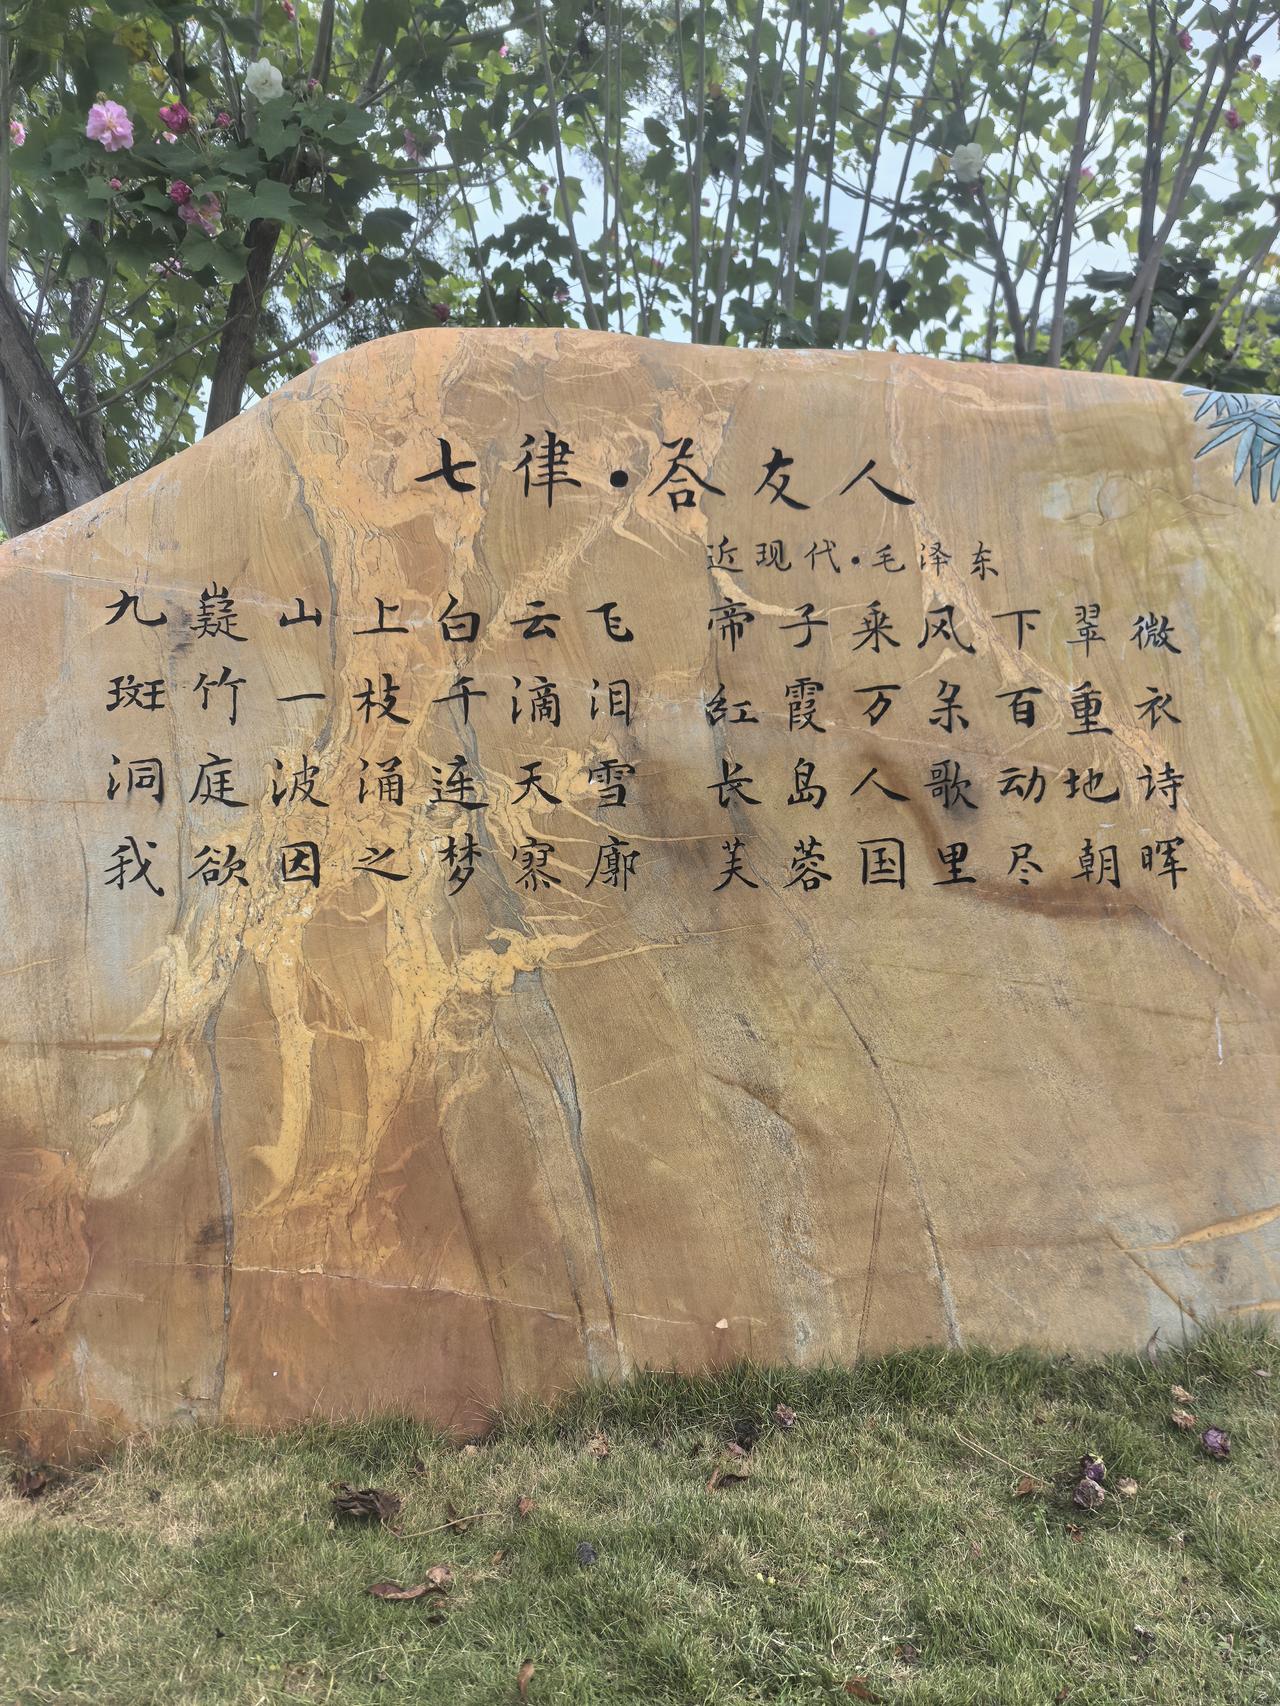 七律·荅友人
近现代·毛泽东
九嶷山上白云飞 帝子乘风下翠微
斑竹一枝千滴泪 红霞万朵百重衣
洞庭波涌连天雪 长岛人歌动地诗
我欲因之梦寥廓 芙蓉国里尽朝晖